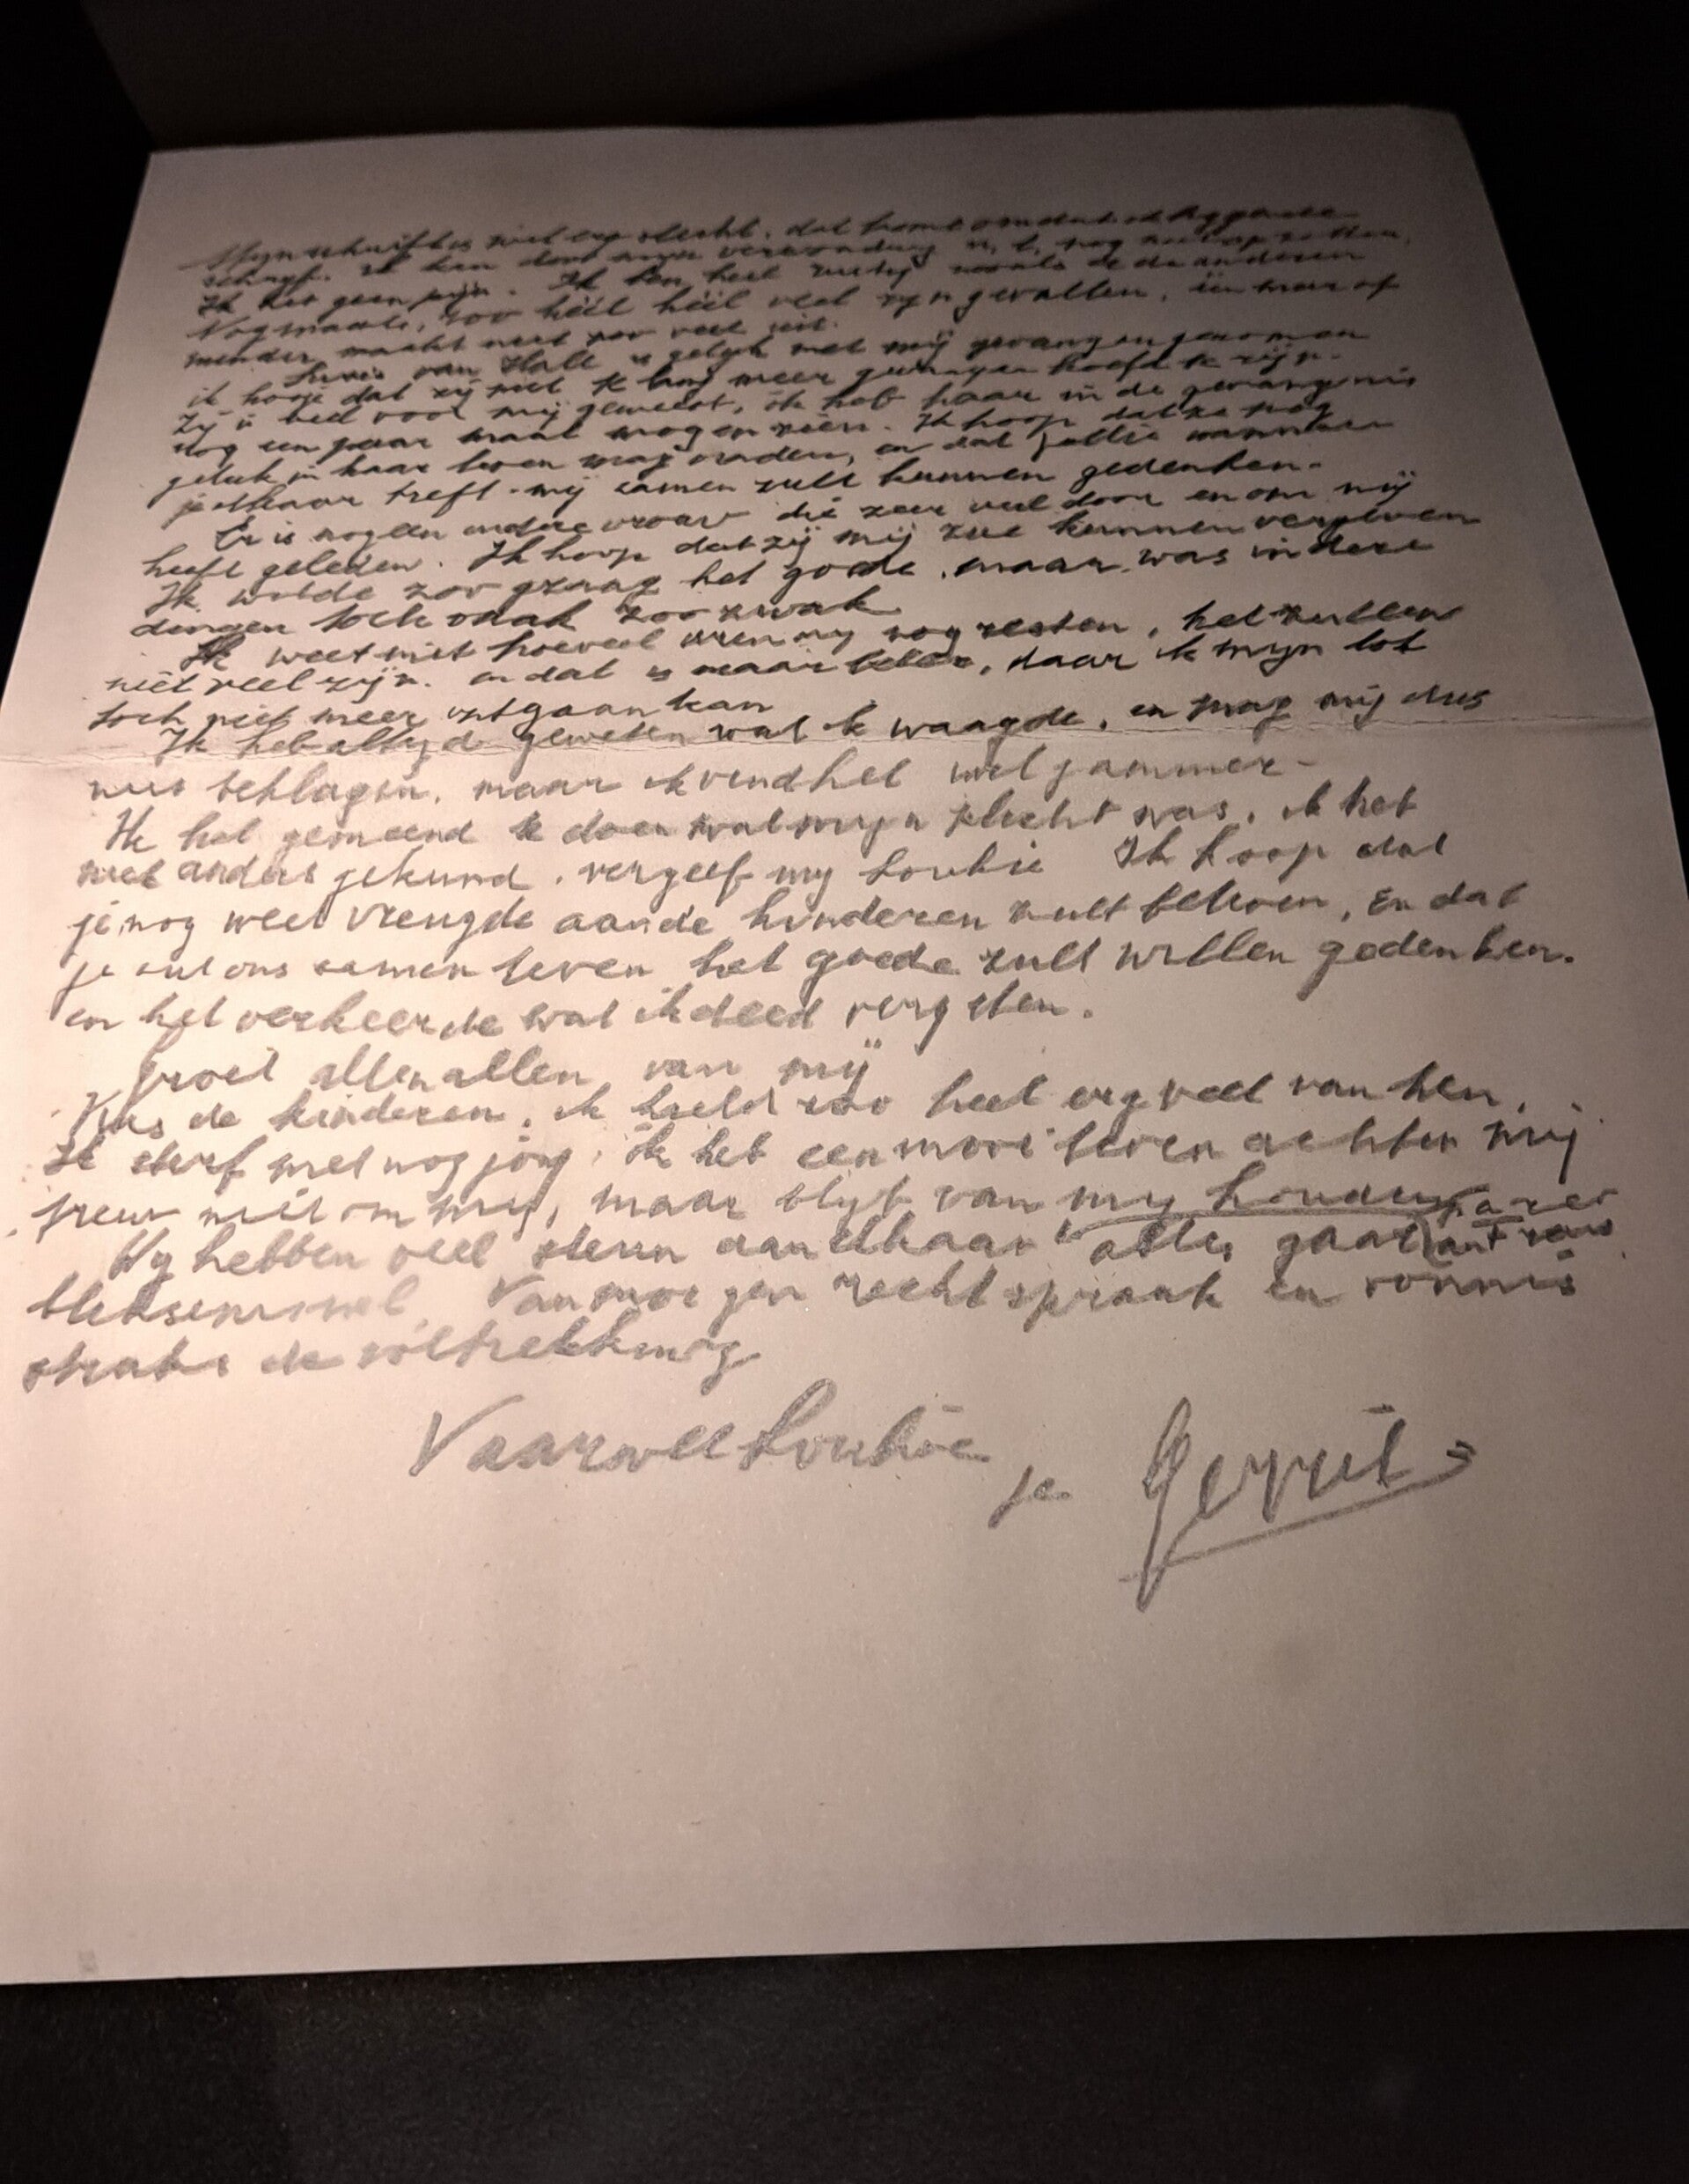 Mijn schrift is niet erg slecht, dat komt omdat ik liggende
schrijf. Ik kan door mijn verwonding n.l. nog niet op zitten.
Ik heb geen pijn. Ik ben heel rustig zooals de de anderen
Nogmaals, zoo héél héél veel zijn gevallen, één meer of
minder maakt niet zoo veel uit.
van Hall is gelijk met mij gevangen genomen
ik hoop dat zij niet te lang meer gevangen hoeft te zijn.
Zij is veel voor mij geweest, ik heb haar in de gevangenis
nog een paar maal mogen zien. Ik hoop dat ze nog
geluk in haar leven mag vinden, en dat jullie wanneer
je elkaar treft mij samen zult kunnen gedenken.
Er is nog een andere vrouw die zeer veel door en om mij
heeft geleden. Ik hoop dat zij mij zal kunnen vergeven
Ik wilde zoo graag het goede, maar was in deze
dingen toch vaak zoo zwak
Ik weet niet hoeveel uren mij nog resten, het zullen
niet veel zijn. en dat is maar beter, daar ik mijn lot
toch niet meer ontgaan kan
Ik heb altijd geweten wat ik waagde, en mag mij dus
niet beklagen, maar ik vind het wel jammer
Ik heb gemeend te doen wat mijn plicht was, ik heb
niet anders gekund, vergeef mij Loukie Ik hoop dat
je nog veel vreugde aan de kinderen zult beleven, En dat
je uit ons samen leven het goede zult willen gedenken.
en het verkeerde wat ik deed vergeten.
Groet allen allen van mij
Kus de kinderen, ik hield zoo heel erg veel van hen,
Ik sterf met nog jong, ik heb een mooi leven achter mij
treur niet om mij, maar blijf van mij houden
Wij hebben veel steun aan elkaar alles gaat
bliksemsnel. Vanmorgen rechtspraak en vonnis
straks de voltrekking
Vaarwel Loukie
je Gerrit